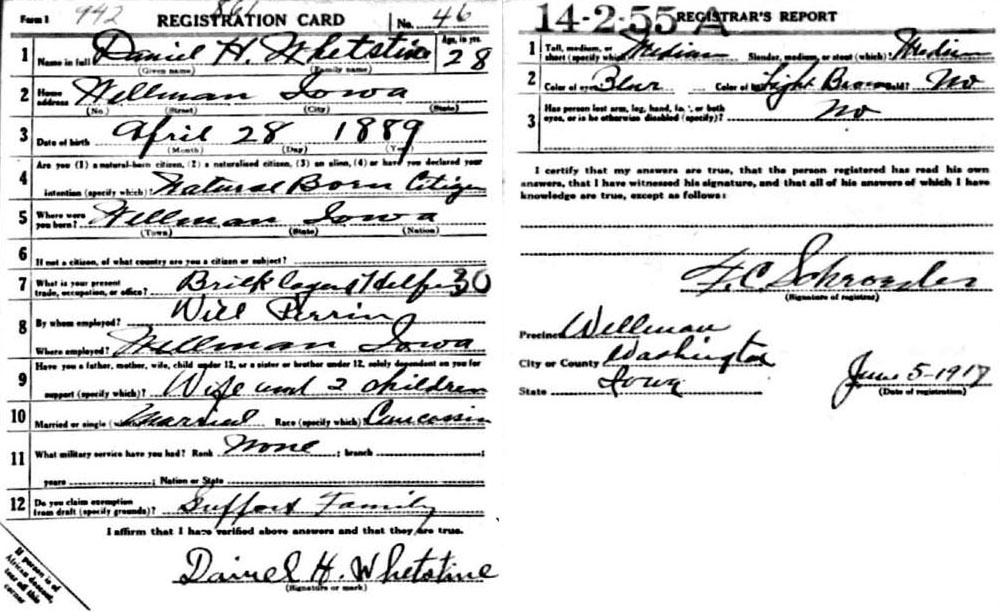 Form 1 942 861 REGISTRATION CARD No. 46
1 Name in full Daniel H. Whetstine Age, in yrs. 28
(Given name) (Family name)
2 Home address Wellman Iowa
(No.) (Street) (City) (State)
3 Date of birth April 28 1889
(Month) (Day) (Year)
4 Are you (1) a natural-born citizen, (2) a naturalized citizen, (3) an alien, (4) or have you declared your
intention (specify which)? Natural Born Citizen
5 Where were you born? Wellman Iowa
(Town) (State) (Nation)
6 If not a citizen, of what country are you a citizen or subject?
7 What is your present trade, occupation, or office? Brick layers Helper 30
8 By whom employed? Will Perrin
Where employed? Wellman Iowa
9 Have you a father, mother, wife, child under 12, or a sister or brother under 12, solely dependent on you for
support (specify which)? Wife and 2 children
10 Married or single (which) Married Race (specify which)? Caucassin
11 What military service have you had? Rank None ; branch ;
years ; Nation or State
12 Do you claim exemption from draft (specify grounds)? Support Family
I affirm that I have verified above answers and that they are true.
Dainel H. Whetstine
(Signature or mark)
If person is of
African descent,
tear off this
corner
14-2-55 A REGISTRAR'S REPORT
1 Tall, medium, or short (specify which)? Medium Slender, medium, or stout (which)? Medium
2 Color of eyes Blue Color of hair Light Brown Bald? No
3 Has person lost arm, leg, hand, foot, or both
eyes, or is he otherwise disabled (specify)? No
I certify that my answers are true, that the person registered has read his own
answers, that I have witnessed his signature, and that all of his answers of which I have
knowledge are true, except as follows:
F. C. Schroeder
(Signature of registrar)
Precinct Wellman
City or County Washington
State Iowa
June 5-1917
(Date of registration)